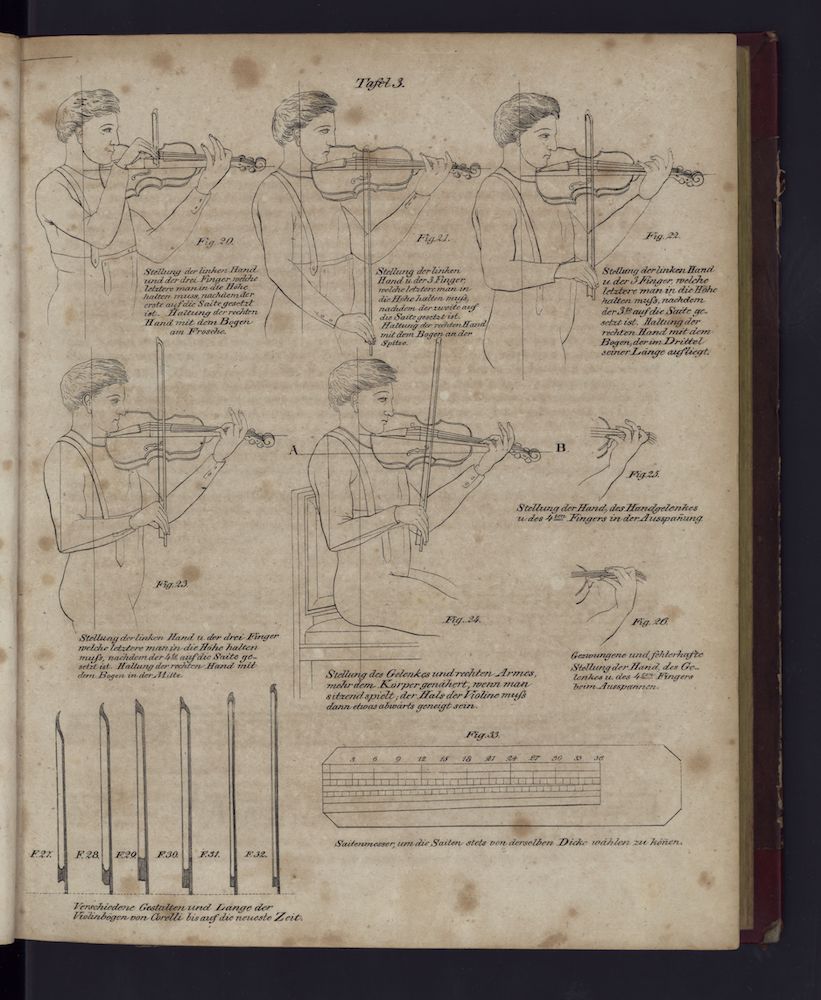 Tafel 3.
Fig. 20.
Stellung der linken Hand
und der drei Finger, welche
letztere man in die Höhe
halten muss, nachdem der
erste auf die Saite gesetzt
ist. Haltung der rechten
Hand mit dem Bogen
am Frosche.
Fig. 21.
Stellung der linken
Hand u. der 3 Finger,
welche letztere man in
die Höhe halten muß,
nachdem der zweite auf
die Saite gesetzt ist.
Haltung der rechten Hand
mit dem Bogen an der
Spitze.
Fig. 22.
Stellung der linken Hand
u. der 3 Finger, welche
letztere man in die Höhe
halten muß, nachdem
der 3te auf die Saite ge-
setzt ist. Haltung der
rechten Hand mit dem
Bogen, der im Drittel
seiner Länge aufliegt.
Fig. 23.
Stellung der linken Hand u. der drei Finger
welche letztere man in die Höhe halten
muß, nachdem der 4te auf die Saite ge-
setzt ist. Haltung der rechten Hand mit
dem Bogen in der Mitte.
A
B
Fig. 24.
Stellung des Gelenkes und rechten Armes,
mehr dem Körper genähert, wenn man
sitzend spielt, der Hals der Violine muß
dann etwas abwärts geneigt sein.
Fig. 25.
Stellung der Hand, des Handgelenkes
u. des 4ten Fingers in der Ausspañung.
Fig. 26.
Gezwungene und fehlerhafte
Stellung der Hand, des Ge-
lenkes u. des 4ten Fingers
beim Ausspannen.
F. 27. F. 28. F. 29. F. 30. F. 31. F. 32.
Verschiedene Gestalten und Länge der
Violinbögen von Corelli bis auf die neueste Zeit.
Fig. 33.
3 6 9 12 15 18 21 24 27 30 33 36
Saitenmesser, um die Saiten stets von derselben Dicke wählen zu köñen.